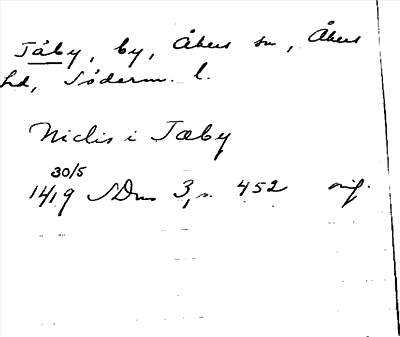 Täby, by, Åkers sn, Åkers
hd, Söderm. l.
Niclis i Tæby
30/5
1419 SDns 3, s. 452 orig.